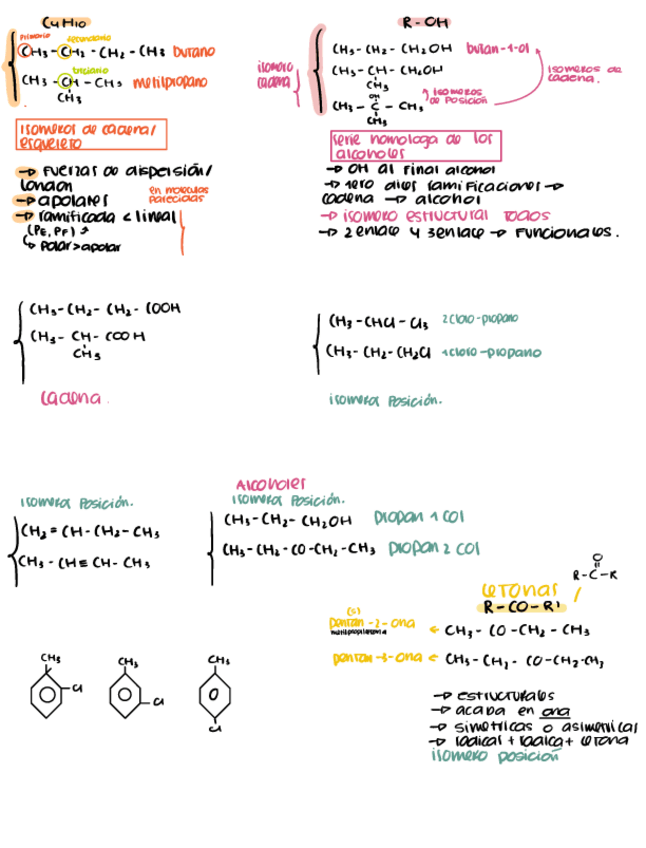 C4H10
primario
secundario
CH3 - CH2 - CH2 - CH3 butano
terciario
CH3 - CH - CH3 metilpropano
CH3
isomeros de cadena/
esqueleto
→ Fuerzas de dispersión/
London
→ apolares
→ ramificada < lineal
(PE, PF)
↳ Polar > apolar
en moleculas
parecidas
R - OH
isomero
cadena
CH3 - CH2 - CH2OH butan-1-ol
CH3 - CH - CH2OH
CH3
OH
CH3 - C - CH3
CH3
isomeros
de posición
isomeros de
cadena.
serie homologa de los
alcoholes
→ OH al final alcohol
→ 1ero ramificaciones →
cadena → alcohol
→ isomero estructural todos
→ 2 enlace y 3 enlace → Funcionales.
CH3 - CH2 - CH2 - COOH
CH3 - CH - COOH
CH3
cadena.
CH3 - CHCl - Cl3 2cloro-propano
CH3 - CH2 - CH2Cl 1cloro-propano
isomeros Posición.
isomeros Posición.
CH2 = CH - CH2 - CH3
CH3 - CH ≡ CH - CH3
Alcoholes
isomeros Posición.
CH3 - CH2 - CH2OH propan 1 col
CH3 - CH2 - CO - CH2 - CH3 propan 2 col
O
R - C - R
cetonas
R - CO - R'
pentan-2-ona ← CH3 - CO - CH2 - CH3
pentan-3-ona < CH3 - CH2 - CO - CH2 - CH3
→ estructurales
→ acaba en ona
→ simetricas o asimetricas
→ radical + radical + cetona
isomero posición
CH3
Cl
CH3
Cl
CH3
Cl